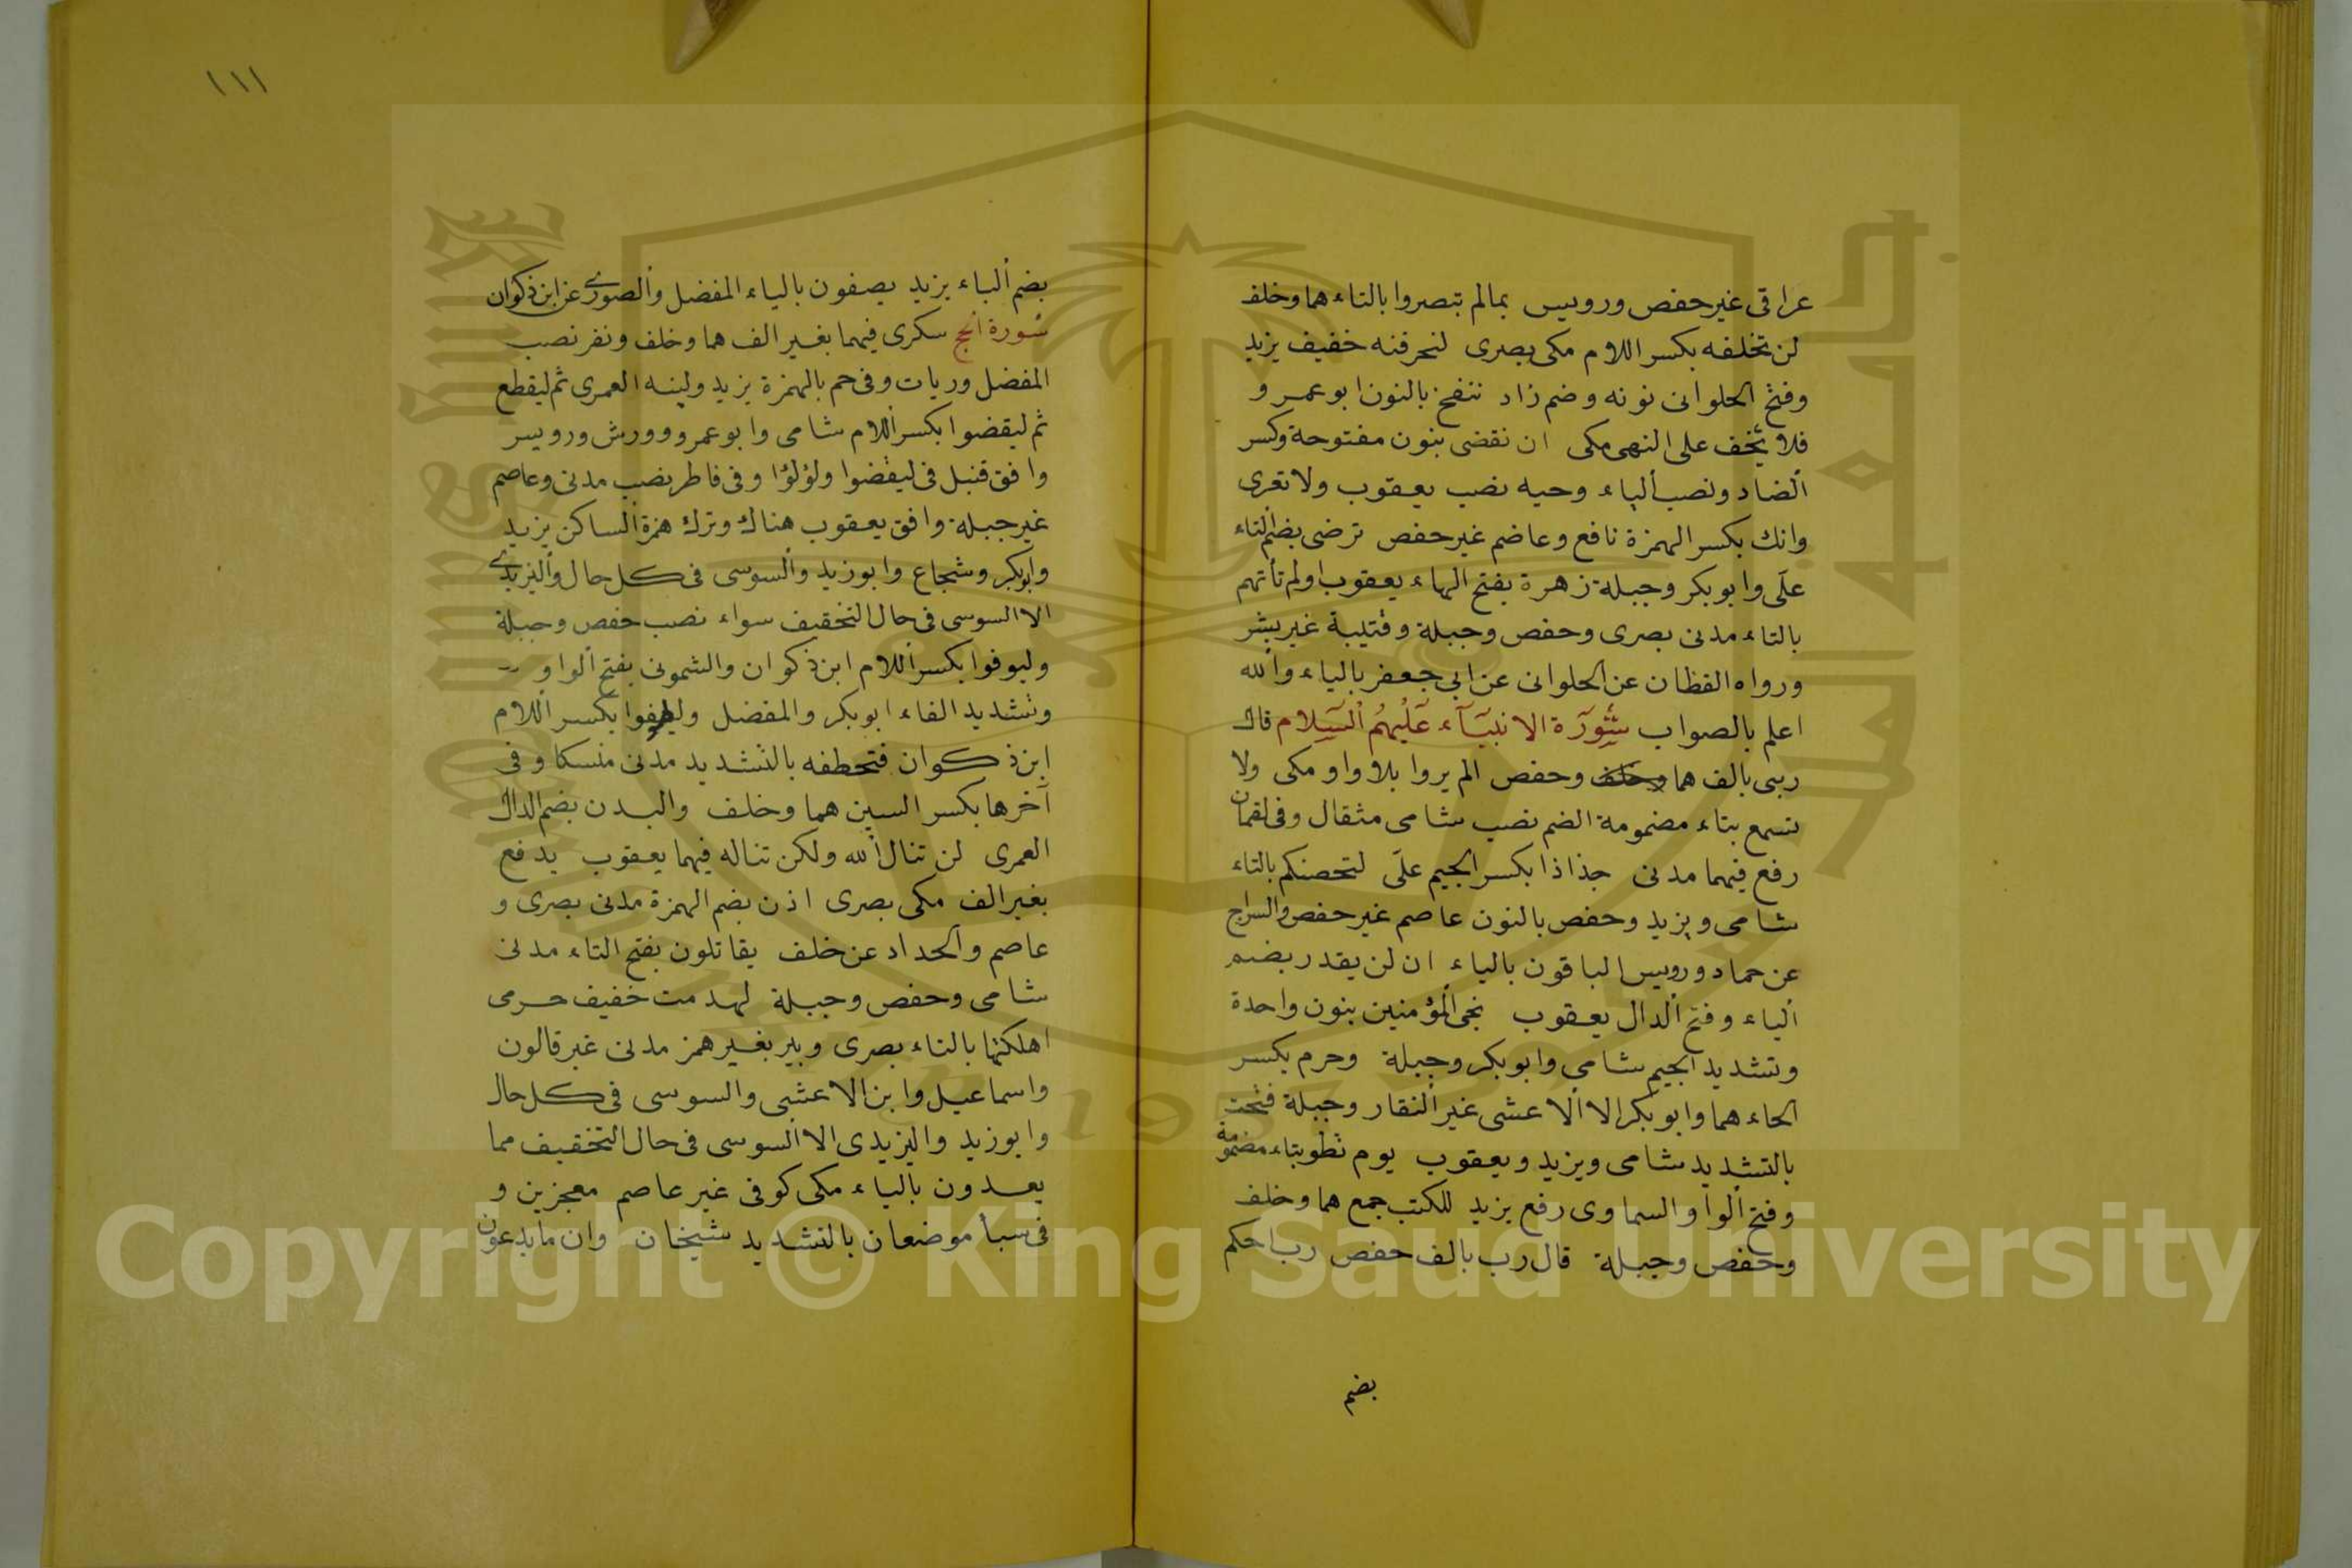 عراقى غير حفص ورويس بمالم تبصروا بالتاء هما وخلف
لن تخلفه بكسر اللام مكى بصرى لنحرقنه خفيف يزيد
وفتح الحلوانى نونه وضم زاد ننفخ بالنون ابو عمرو و
فلا يخف على النهى مكى ان نقضى بنون مفتوحة وكسر
الضاد ونصب الياء وحيه نصب يعقوب ولا تعرى
وانك بكسر الهمزة نافع وعاصم غير حفص ترضى بضم التاء
على وابو بكر وجبلة زهرة بفتح الهاء يعقوب اولم تأتهم
بالتاء مدنى بصرى وحفص وجبلة وقتيبة غير بشر
ورواه القطان عن الحلوانى عن ابى جعفر بالياء والله
اعلم بالصواب سورة الانبيآء عليهم السلام قال
ربى بالف هما وخلف وحفص الم يروا بلا واو مكى ولا
تسمع بتاء مضمومة الضم نصب شامى مثقال وفى لقمان
رفع فيهما مدنى جذاذا بكسر الجيم على لتحصنكم بالتاء
شامى ويزيد وحفص بالنون عاصم غير حفص والسراج
عن حماد ورويس الباقون بالياء ان لن يقدر بضم
الياء وفتح الدال يعقوب نجى المؤمنين بنون واحدة
وتشديد الجيم شامى وابو بكر وجبلة وحرم بكسر
الحاء هما وابو بكر الا الاعشى غير النقار وجبلة فتحت
بالتشديد شامى ويزيد ويعقوب يوم تطو بتاء مضمومة
وفتح الواو السماوى رفع يزيد للكتب جمع هما وخلف
وحفص وجبلة قال رب بالف حفص رب احكم
بضم
١١١
بضم الباء يزيد يصفون بالياء المفضل والصورى عن ابن ذكوان
سورة الحج سكرى فيهما بغير الف هما وخلف ونقر نصب
المفضل وربات وفى حم بالهمزة يزيد ولينه العمرى ثم ليقطع
ثم ليقضوا بكسر اللام شامى وابو عمرو وورش ورويس
وافق قنبل فى ليقضوا ولؤلؤا وفى فاطر نصب مدنى وعاصم
غير جبلة وافق يعقوب هناك وترك همزة الساكن يزيد
وابوبكر وشجاع وابو زيد والسوسى فى كل حال واليزيدى
الا السوسى فى حال التخفيف سواء نصب حفص وجبلة
وليوفوا بكسر اللام ابن ذكوان والشمونى بفتح الواو
وتشديد الفاء ابو بكر والمفضل وليطوفوا بكسر اللام
ابن ذكوان فتخطفه بالتشديد مدنى منسكا وفى
آخرها بكسر السين هما وخلف والبدن بضم الدال
العمرى لن تنال الله ولكن تناله فيهما يعقوب يدفع
بغير الف مكى بصرى اذن بضم الهمزة مدنى بصرى و
عاصم والحداد عن خلف يقاتلون بفتح التاء مدنى
شامى وحفص وجبلة لهدمت خفيف حرمى
اهلكتها بالتاء بصرى وبير بغير همز مدنى غير قالون
واسماعيل وابن الاعشى والسوسى فى كل حال
وابو زيد واليزيدى الا السوسى فى حال التخفيف مما
يعدون بالياء مكى كوفى غير عاصم معجزين و
فى سبأ موضعان بالتشديد شيخان وان ما يدعون
Copyright © King Saud University